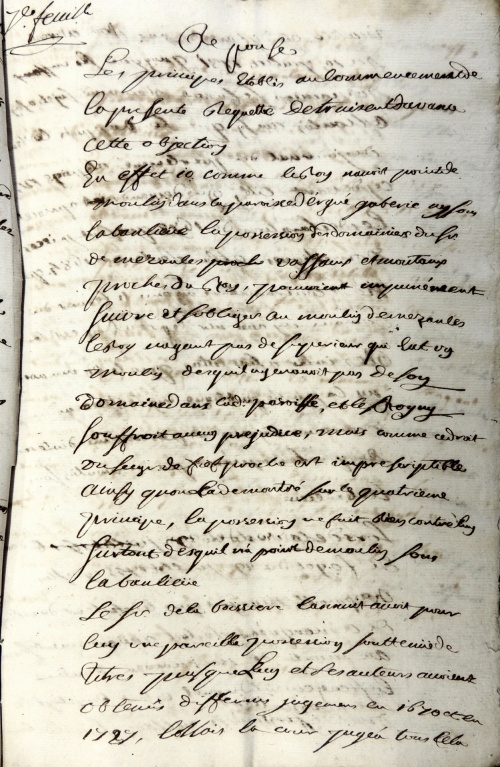 7e feuille
Reponses
Les principes Etablis au Commencement de
la presente Requette detruisent davance
cette objection
En effet io comme le Roy navoit point de
moulin dans la paroisse dergué gaberic ny sous
la banlieue la possession des domainiers du Sr
de mezanles proche vassaux et moutaux
proches du Roy, pouvoient impunément
suivre et sobliger au moulin de mezanles
le Roy nayant pas de superieur qui Eut un
moulin desquil ny avoit pas de son
Domaine dans ladte paroisse, et le Roy ny
souffroit aucun prejudice, mais comme ce droit
du seigr de fief proche est imprescriptible
ainsy quon La demontré sur le quatrieme
principe, la possession ne fait Rien contre luy
surtout desquil na point de moulin sous
la banlieue
Le Sr de la boissiere avoit pour
luy une pareille possession souttenue de
titres puisque Luy et Ses auteurs avoient
obtenus differens jugemens en 1670 et en
1727, la cour jugea tous